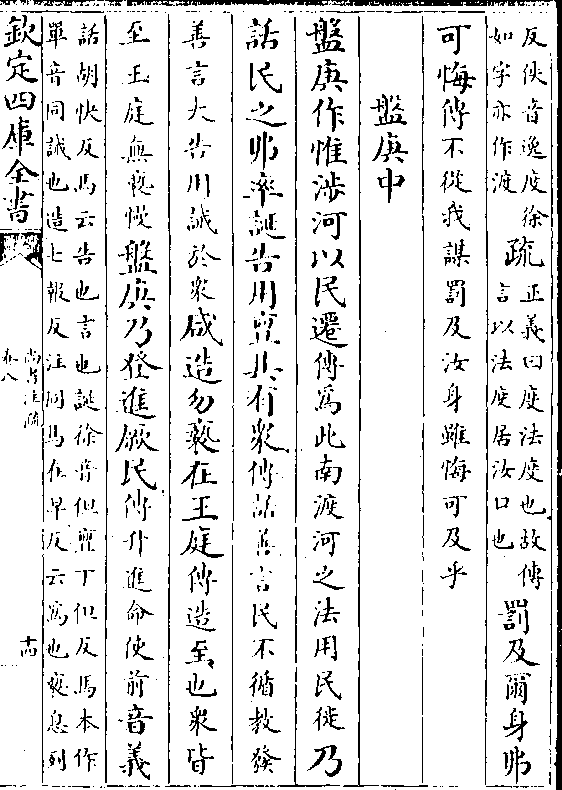 反佚音逸度徐
如字亦作渡
疏
正義曰度法度也故傳
言以法度居汝口也
罰及爾身弗
可悔傳不從我謀罰及汝身雖悔可及乎
盤庚中
盤庚作惟涉河以民遷傳爲此南渡河之法用民徙乃
話民之弗率誕告用亶其有衆傳話善言民不循教發
善言大告用誠於衆咸造勿褻在王庭傳造至也衆皆
至王庭無褻慢盤庚乃登進厥民傳升進命使前音義
話胡快反馬云告也言也誕徐音但亶丁但反馬本作
單音同誠也造七報反注同馬在早反云爲也褻息列
欽定四庫全書
尚書注疏
卷八
十四